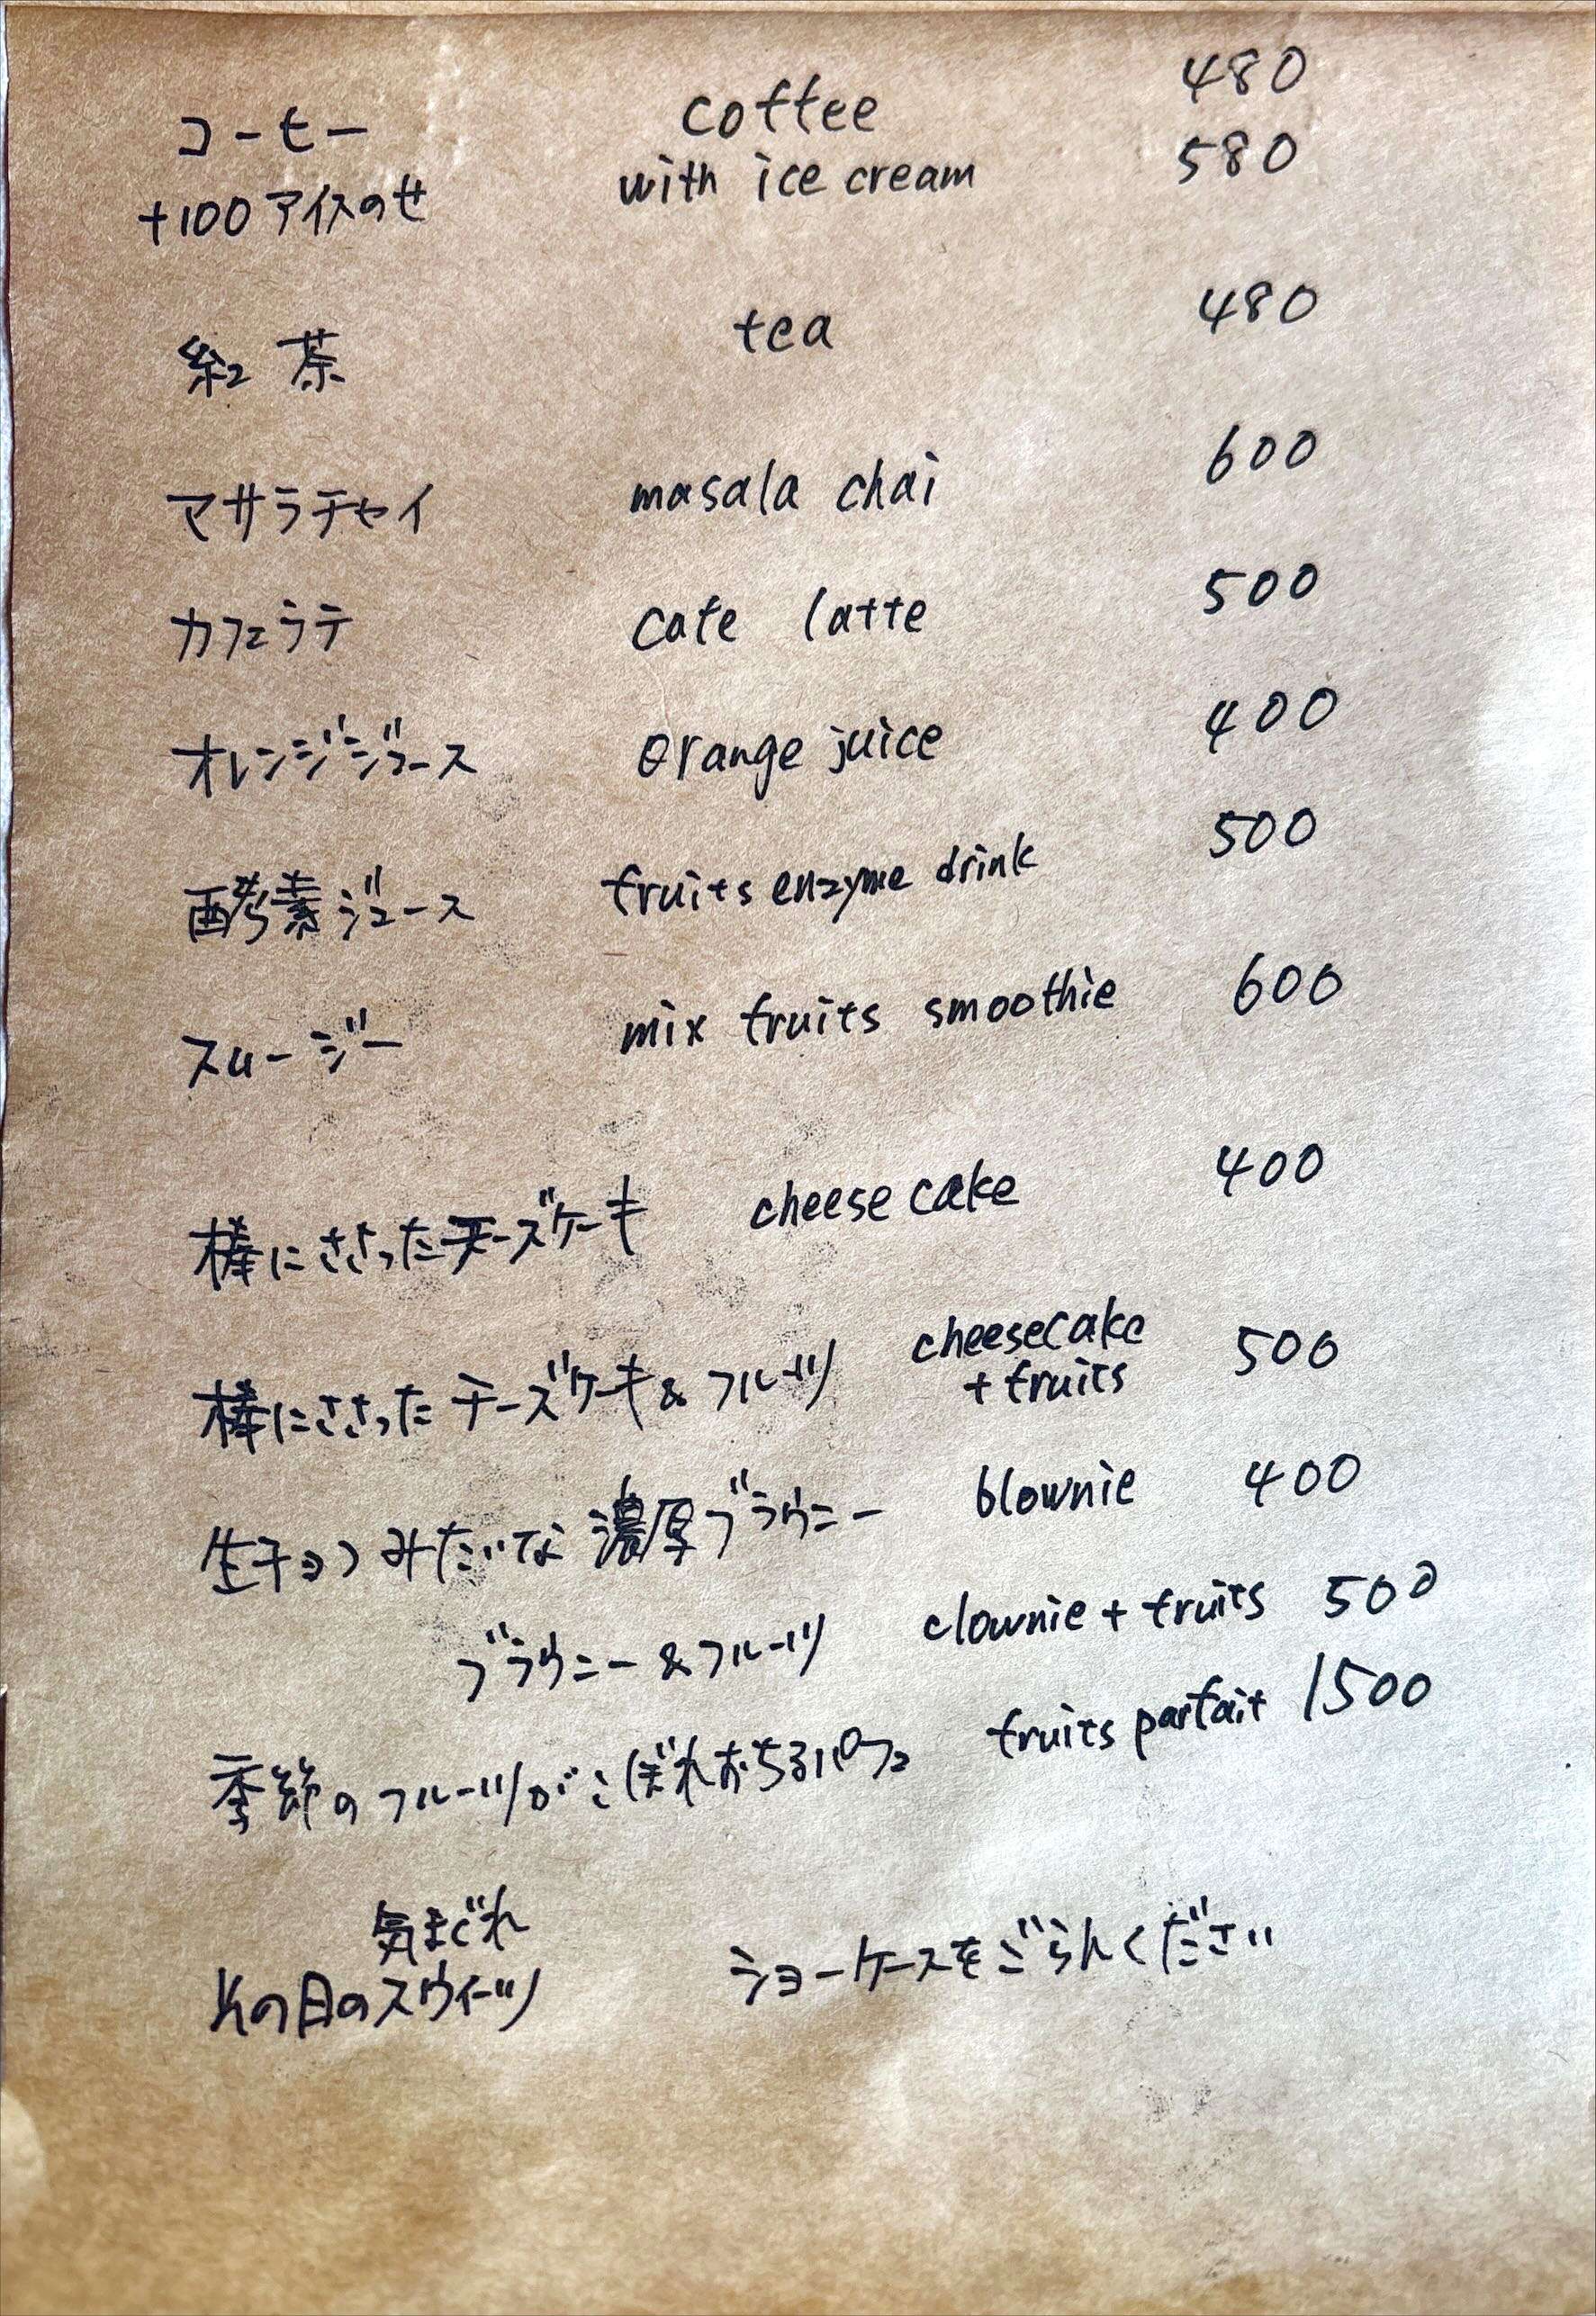 コーヒー coffee 480
+100 アイスのせ with ice cream 580
紅茶 tea 480
マサラチャイ masala chai 600
カフェラテ cafe latte 500
オレンジジュース orange juice 400
酵素ジュース fruits enzyme drink 500
スムージー mix fruits smoothie 600
棒にささったチーズケーキ cheese cake 400
棒にささったチーズケーキ&フルーツ cheesecake + fruits 500
生チョコみたいな濃厚ブラウニー blownie 400
ブラウニー&フルーツ clownie + fruits 500
季節のフルーツがこぼれおちるパフェ fruits parfait 1500
気まぐれ
その日のスウィーツ ショーケースをごらんください